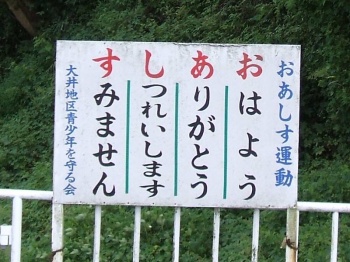 おあしす運動
おはよう
ありがとう
しつれいします
すみません
大井地区青少年を守る会